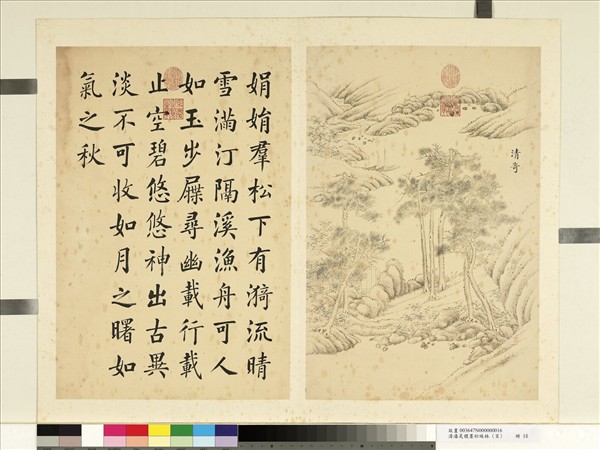 清奇
娟娟羣松下有漪流晴
雪滿汀隔溪漁舟可人
如玉步屧尋幽載行載
止空碧悠悠神出古異
淡不可收如月之曙如
氣之秋
故畫 003647N000000016
清潘是稷墨妙珠林（亥）